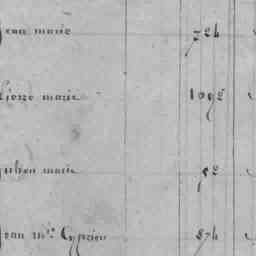 Jean marie 7 2h
Pierre marie 109e
Julien marie 5e
Jean m.ie Cyprien 87h